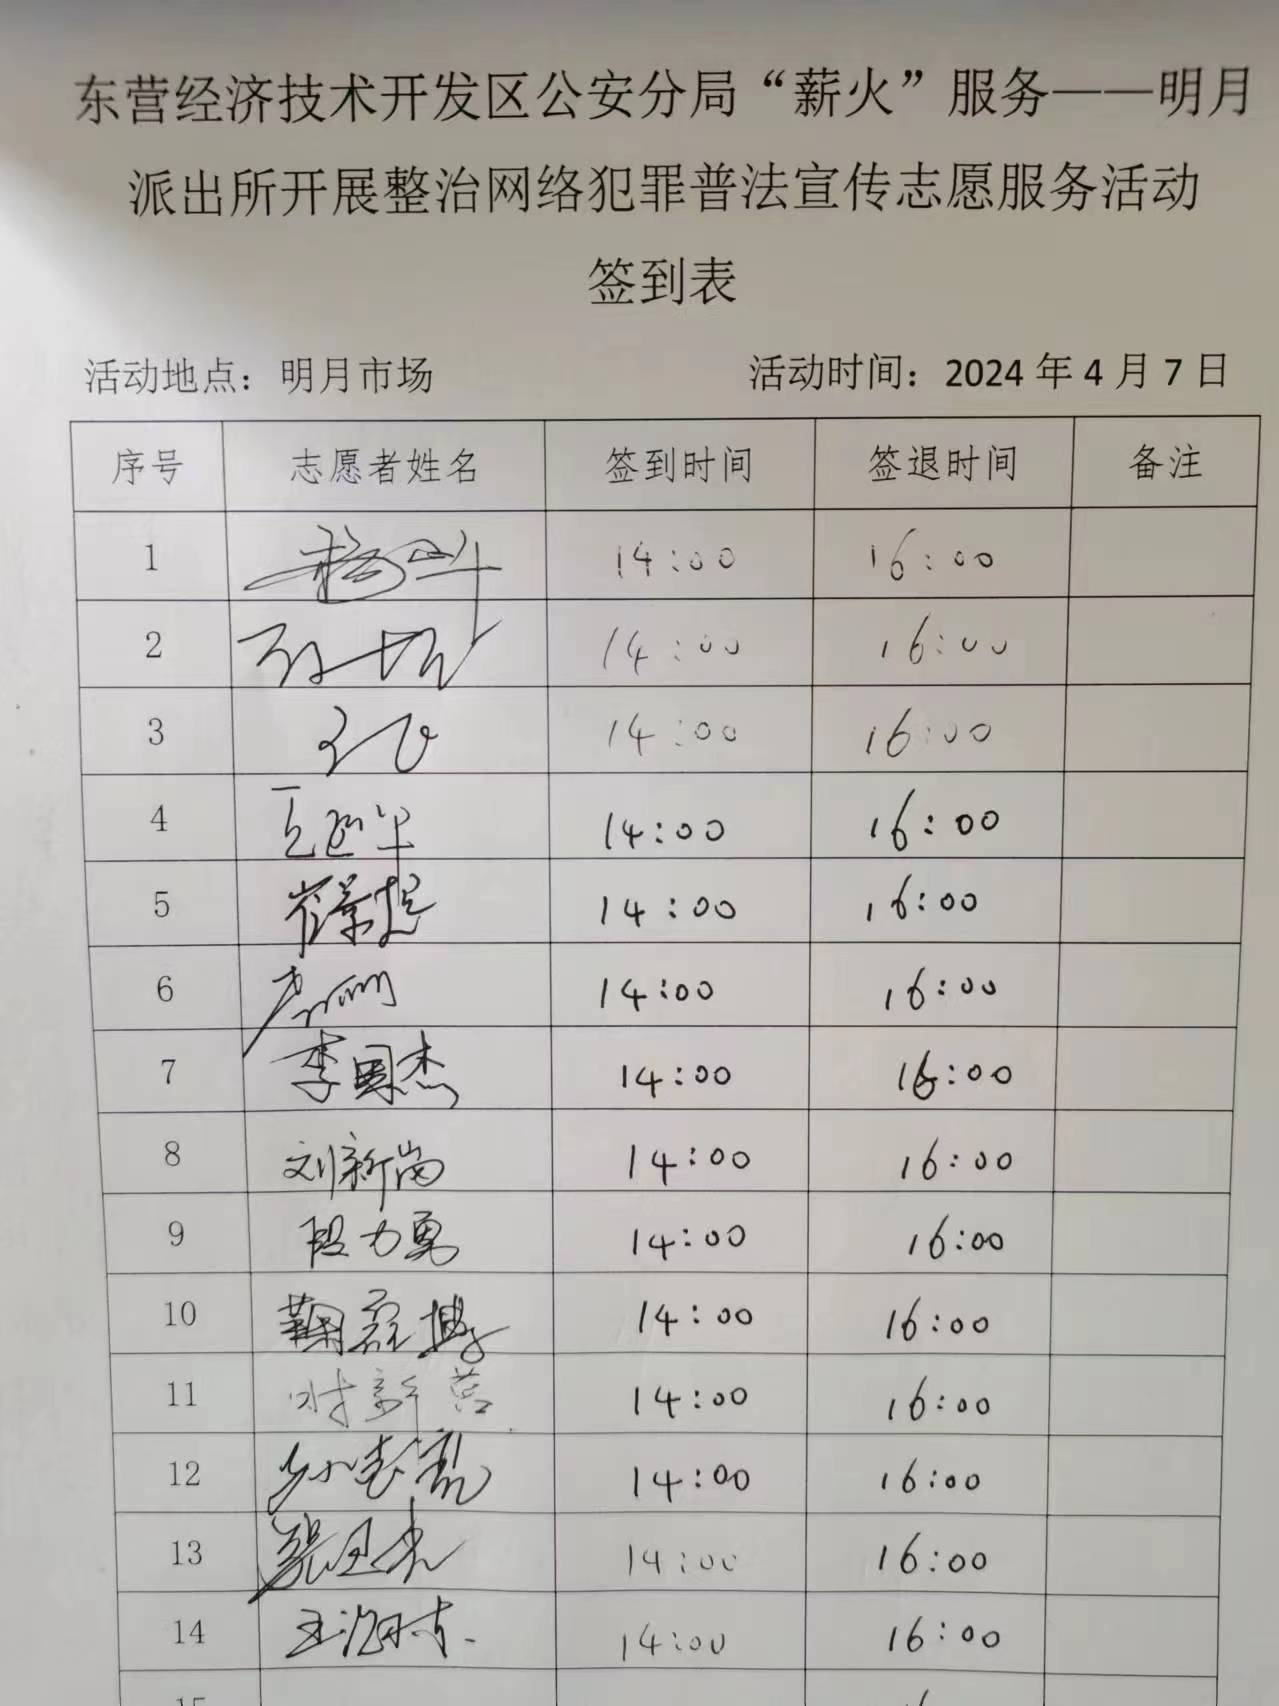 东营经济技术开发区公安分局“薪火”服务——明月
派出所开展整治网络犯罪普法宣传志愿服务活动
签到表
活动地点：明月市场 活动时间：2024 年 4 月 7 日
序号 志愿者姓名 签到时间 签退时间 备注
1 14:00 16:00
2 14:00 16:00
3 14:00 16:00
4 14:00 16:00
5 14:00 16:00
6 14:00 16:00
7 李国杰 14:00 16:00
8 刘新岗 14:00 16:00
9 段力勇 14:00 16:00
10 14:00 16:00
11 14:00 16:00
12 14:00 16:00
13 14:00 16:00
14 14:00 16:00
15